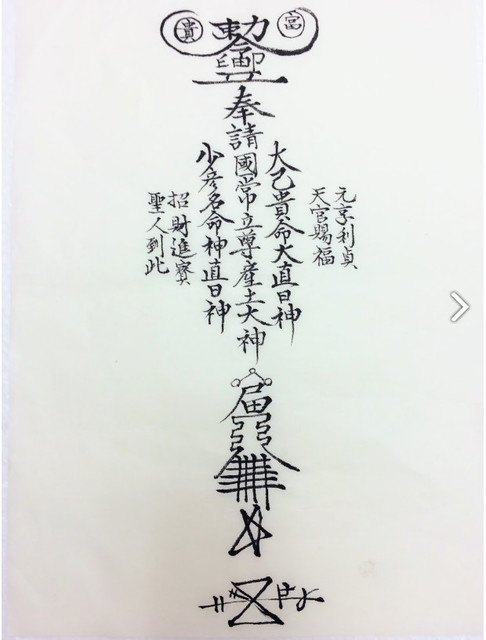 富貴
元亨利貞
天官賜福
大己貴命大直日神
奉請國常立尊産土大神
少彦名命神直日神
招財進寶
聖人到此